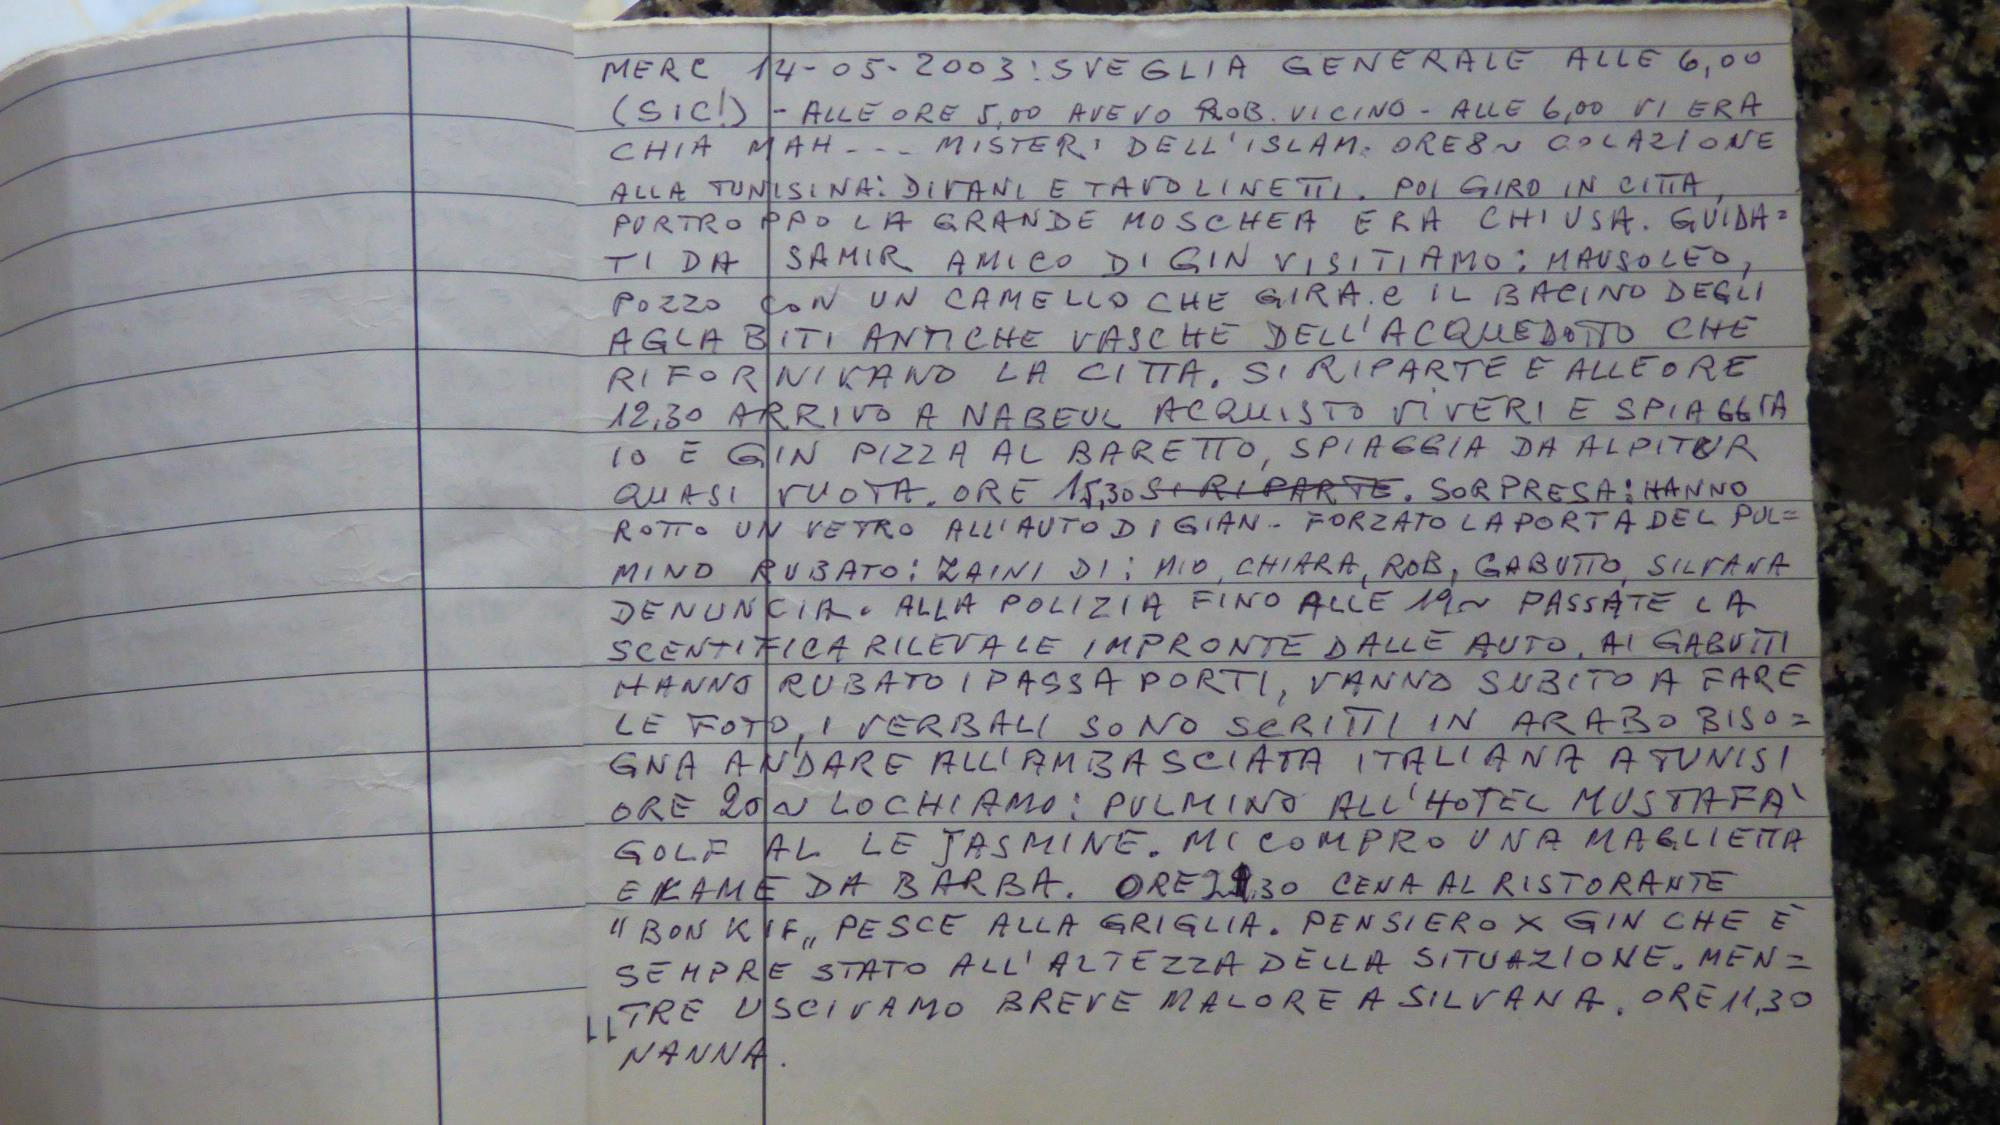 MERC 14-05-2003: SVEGLIA GENERALE ALLE 6,00
(SIC!) - ALLE ORE 5,00 AVEVO ROB. VICINO - ALLE 6,00 VI ERA
CHIA MAH --- MISTERI DELL'ISLAM. ORE 8~ COLAZIONE
ALLA TUNISINA: DIVANI E TAVOLINETTI. POI GIRO IN CITTA,
PURTROPPO LA GRANDE MOSCHEA ERA CHIUSA. GUIDA=
TI DA SAMIR AMICO DI GIN VISITIAMO: MAUSOLEO,
POZZO CON UN CAMELLO CHE GIRA. e IL BACINO DEGLI
AGLABITI ANTICHE VASCHE DELL'ACQUEDOTTO CHE
RIFORNIVANO LA CITTA. SI RIPARTE E ALLE ORE
12,30 ARRIVO A NABEUL ACQUISTO VIVERI E SPIAGGIA
IO E GIN PIZZA AL BARETTO, SPIAGGIA DA ALPITUR
QUASI VUOTA. ORE 15,30 SI RIPARTE. SORPRESA: HANNO
ROTTO UN VETRO ALL'AUTO DI GIAN - FORZATO LA PORTA DEL PUL=
MINO RUBATO: ZAINI DI: MIO, CHIARA, ROB, GABUTTO, SILVANA
DENUNCIA. ALLA POLIZIA FINO ALLE 19~ PASSATE LA
SCENTIFICA RILEVALE IMPRONTE DALLE AUTO. AI GABUTTI
HANNO RUBATO I PASSAPORTI, VANNO SUBITO A FARE
LE FOTO, I VERBALI SONO SCRITTI IN ARABO BISO=
GNA ANDARE ALL'AMBASCIATA ITALIANA A TUNISI
ORE 20~ LOCHIAMO: PULMINO ALL'HOTEL MUSTAFA'
GOLF AL LE JASMINE. MI COMPRO UNA MAGLIETTA
E LAME DA BARBA. ORE 21,30 CENA AL RISTORANTE
"BON KIF" PESCE ALLA GRIGLIA. PENSIERO X GIN CHE È
SEMPRE STATO ALL'ALTEZZA DELLA SITUAZIONE. MEN=
TRE USCIVAMO BREVE MALORE A SILVANA. ORE 11,30
NANNA.